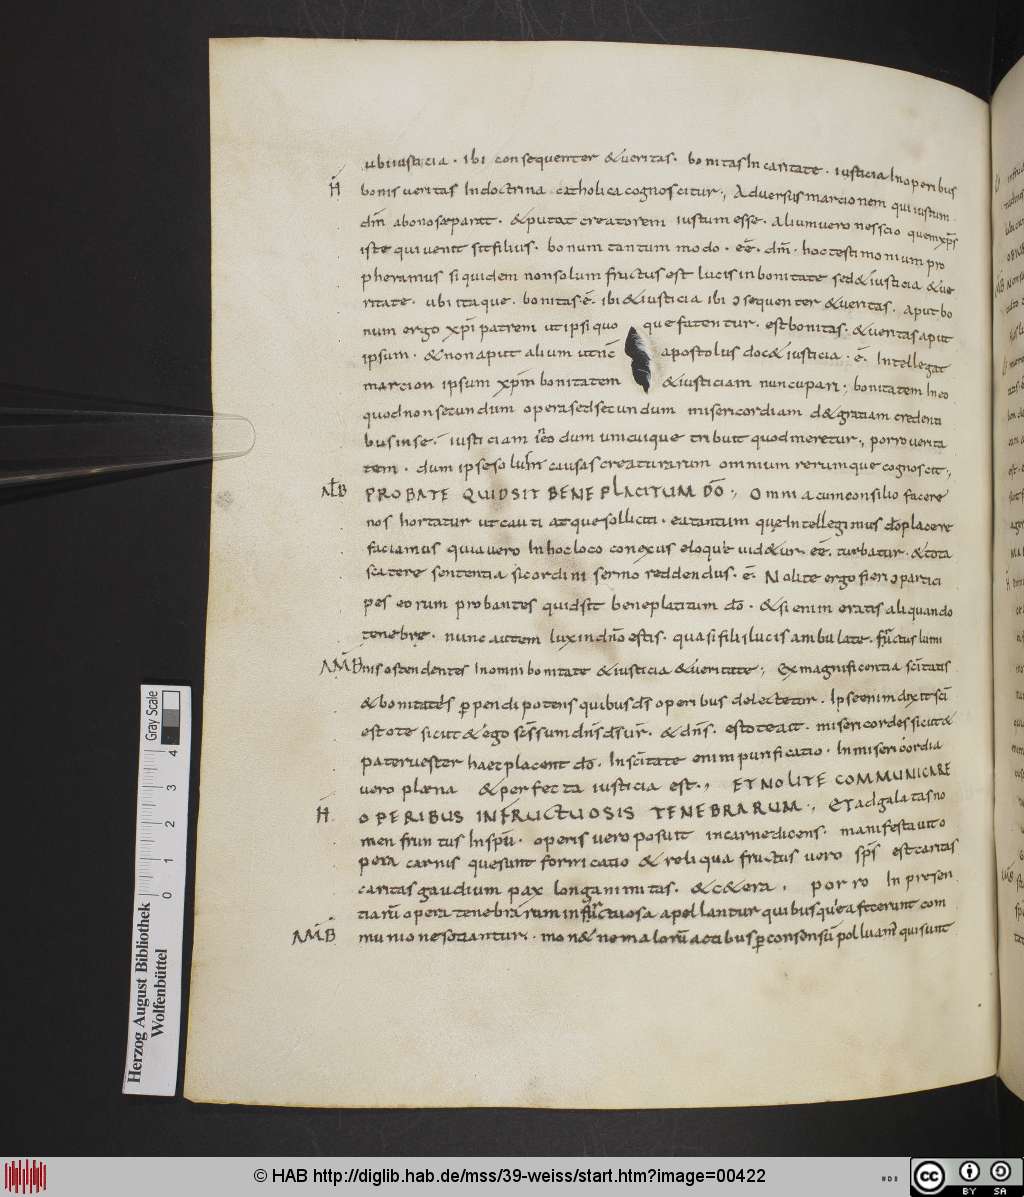 ubi iusticia. ibi consequenter & ueritas. bonitas in caritate. iusticia in operibus
H̄ bonis ueritas in doctrina catholica cognoscitur; Aduersus marcionem qui iustum
dm̄ a bono separat. & putat creatorem iustum esse. alium uero nesscio quem xp̄s
iste qui uenit sit filius. bonum tantum modo. eē. dm̄. hoc testimonium pro
pheramus si quidem non solum fructus est lucis in bonitate sed & iusticia & ue
ritate. ubi itaque. bonitas ē. ibi & iusticia ibi ɔsequenter & ueritas. aput bo
num ergo xp̄i patrem ut ipsi quoque fatentur. est bonitas. & ueritas aput
ipsum. & non aput alium ut nc̄ apostolus doc& iusticia. ē. Intellegat
marcion ipsum xp̄m bonitatem & iusticiam nuncupari; bonitatem in eo
quod non secundum opera sed secundum misericordiam d& gratiam credenti
bus in se. iusticiam in eo dum unicuique tribuit quod meretur; porro uerita
tem. dum ipse solum causas creaturarum omnium rerumque cognoscit;
AB̄ PROBATE QUID SIT BENEPLACITUM DŌ; Omnia cum consilio facere
nos hortatur ut cauti atque solliciti. ea tantum que intellegimus dō placere
faciamus quia uero in hoc loco conexus eloquie uid&ur eē turbatur. & tota
scatere sententia si cordini sermo reddendus. ē. Nolite ergo fieri ɔpartici
pes eorum probantes quid sit beneplatitum dō. & si enim eratis aliquando
tenebrę. nunc autem lux in dn̄o estis. quasi filii lucis ambulate. fructus lumi
AMB nis ostendentes in omni bonitate & iusticia & ueritate; Ex magnificentia scītatis
& bonitatis perpendi potens quibus ds̄ operibus delectetur. Ipse enim dixit scī
estote sicut & ego scs̄ sum dn̄s ds̄ ur̄. & dn̄s. estote ait. misericordes sicut &
pater uester haec placent dō. In scītate enim purificatio. In misericordia
uero plæna & perfecta iusticia est; ET NOLITE COMMUNICARE
H̄ OPERIBUS INFRUCTUOSIS TENEBRARUM; ET ad galatas no
men fructus in spū. operis uero posuit in carne dicens. manifesta uit o
pera carnis que sunt fornicatio & reliqua fructus uero sps̄ est caritas
caritas gaudium pax longanimitas. & c&era. porro in presen
tiarū opera tenebrarum infructuosa apellantur quibus qui ea fecerunt com
AMB munione sotiantur. mon& ne malorū actibus per consensū polluant qui sunt
Herzog August Bibliothek
Wolfenbüttel
Gray Scale
0 1 2 3 4
© HAB http://diglib.hab.de/mss/39-weiss/start.htm?image=00422
CC BY SA